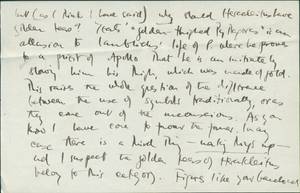 but (as I think I have said) why should Heracleitus have
golden peas? Yeats' "golden-thighed Pythagoras" is an
allusion to Iamblichus' life of P. where he proves
to a priest of Apollo that he is an initiate by
showing him his thigh, which was made of gold.
This raises the whole question of the difference
between the use of symbols traditionally, or as
they come out of the unconscious. As you
know I have come to prefer the former. In any
case there is a third thing — making things up —
and I suspect the golden peas of Heracleitus
belong to this category. Figures like your